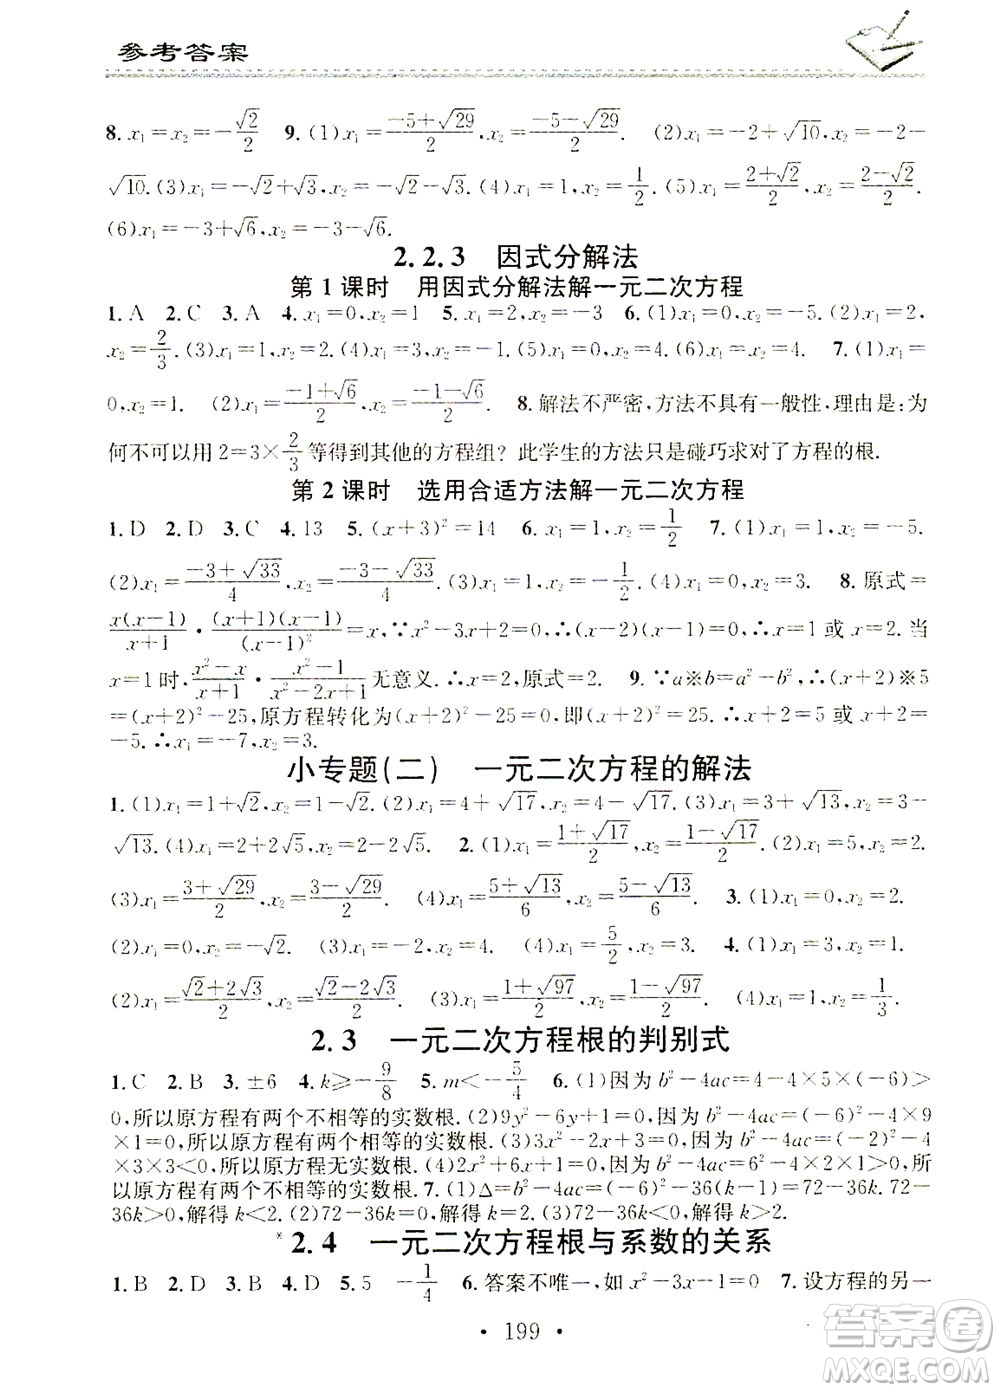 参考答案
8. x₁=x₂=-√2/2 9. (1)x₁=(-5+√29)/2, x₂=(-5-√29)/2. (2)x₁=-2+√10, x₂=-2-
√10. (3)x₁=-√2+√3, x₂=-√2-√3. (4)x₁=1, x₂=1/2. (5)x₁=(2+√2)/2, x₂=(2-√2)/2.
(6)x₁=-3+√6, x₂=-3-√6.
2.2.3 因式分解法
第1课时 用因式分解法解一元二次方程
1. A 2. C 3. A 4. x₁=0, x₂=1 5. x₁=2, x₂=-3 6. (1)x₁=0, x₂=-5. (2)x₁=
x₂=2/3. (3)x₁=1, x₂=2. (4)x₁=x₂=1. (5)x₁=0, x₂=4. (6)x₁=x₂=4. 7. (1)x₁=
0, x₂=1. (2)x₁=(-1+√6)/2, x₂=(-1-√6)/2. 8. 解法不严密,方法不具有一般性,理由是:为
何不可以用2=3×2/3等得到其他的方程组? 此学生的方法只是碰巧求对了方程的根.
第2课时 选用合适方法解一元二次方程
1. D 2. D 3. C 4. 13 5. (x+3)²=14 6. x₁=1, x₂=1/2 7. (1)x₁=1, x₂=-5.
(2)x₁=(-3+√33)/4, x₂=(-3-√33)/4. (3)x₁=1, x₂=-1/2. (4)x₁=0, x₂=3. 8. 原式=
x(x-1)/(x+1)·(x+1)(x-1)/(x-1)²=x, ∵x²-3x+2=0, ∴(x-2)(x-1)=0, ∴x=1或x=2. 当
x=1时, (x²-x)/(x+1)·(x²-1)/(x²-2x+1)无意义. ∴x=2, 原式=2. 9. ∵a※b=a²-b², ∴(x+2)※5
=(x+2)²-25, 原方程转化为(x+2)²-25=0, 即(x+2)²=25. ∴x+2=5 或 x+2=
-5. ∴x₁=-7, x₂=3.
小专题(二) 一元二次方程的解法
1. (1)x₁=1+√2, x₂=1-√2. (2)x₁=4+√17, x₂=4-√17. (3)x₁=3+√13, x₂=3-
√13. (4)x₁=2+2√5, x₂=2-2√5. 2. (1)x₁=(1+√17)/2, x₂=(1-√17)/2. (2)x₁=5, x₂=2.
(3)x₁=(3+√29)/2, x₂=(3-√29)/2. (4)x₁=(5+√13)/6, x₂=(5-√13)/6. 3. (1)x₁=0, x₂=1.
(2)x₁=0, x₂=-√2. (3)x₁=2, x₂=4. (4)x₁=5/2, x₂=3. 4. (1)x₁=3, x₂=9.
(2)x₁=(√2+2√3)/2, x₂=(√2-2√3)/2. (3)x₁=(1+√97)/2, x₂=(1-√97)/2. (4)x₁=1, x₂=1/3.
2.3 一元二次方程根的判别式
1. C 2. B 3. ±6 4. k≥-9/8 5. m<-5/4 6. (1)因为b²-4ac=4-4×5×(-8)>
0,所以原方程有两个不相等的实数根. (2)9y²-6y+1=0. 因为b²-4ac=(-6)²-4×9
×1=0,所以原方程有两个相等的实数根. (3)3x²-2x+3=0. 因为b²-4ac=(-2)²-4
×3×3<0,所以原方程无实数根. (4)2x²+6x+1=0. 因为b²-4ac=6²-4×2×1>0,所
以原方程有两个不相等的实数根. 7. (1)△=b²-4ac=(-6)²-4×(9k-9)=72-36k. 72-
36k>0,解得k<2. (2)72-36k=0,解得k=2. (3)72-36k<0,解得k>2.
*2.4 一元二次方程根与系数的关系
1. B 2. B 3. D 4. D 5. 5 -1/4 6. 答案不唯一,如x²-3x-1=0 7. 设方程的另一
· 199 ·
答案卷
MXQE.COM